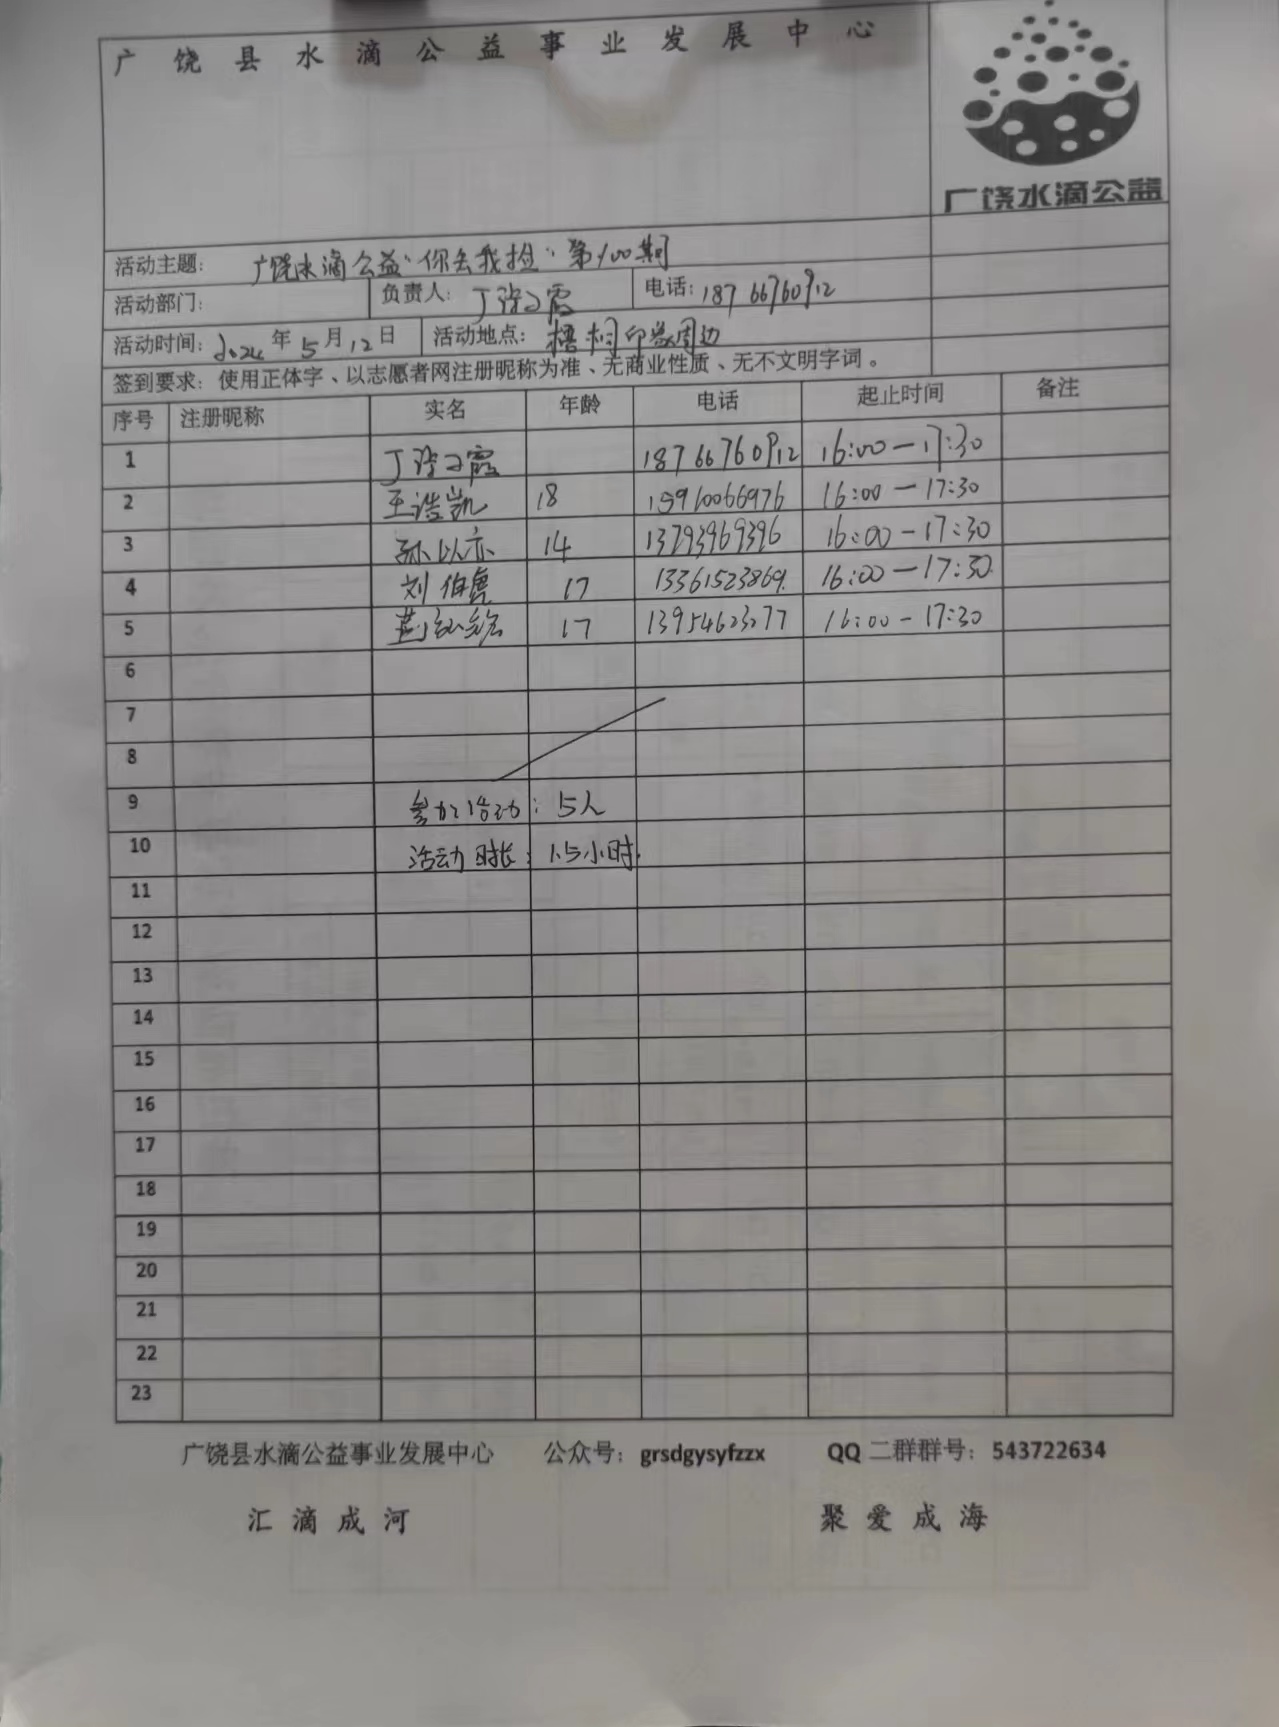 广饶县水滴公益事业发展中心
广饶水滴公益
活动主题： 广饶水滴公益“你丢我捡”第100期
活动部门： 负责人： 丁 霞 电话：18766760912
活动时间：2024年5月12日 活动地点： 梧桐印象周边
签到要求：使用正体字、以志愿者网注册昵称为准、无商业性质、无不文明字词。
序号 注册昵称 实名 年龄 电话 起止时间 备注
1 丁 霞 18766760912 16:00-17:30
2 王浩凯 18 16:00-17:30
3 孙以亦 14 13793969396 16:00-17:30
4 刘伯 17 13361523869 16:00-17:30
5 17 13954623277 16:00-17:30
6
7
8
9 参加活动：5人
10 活动时长：1.5小时.
11
12
13
14
15
16
17
18
19
20
21
22
23
广饶县水滴公益事业发展中心 公众号：grsdgysyfzzx QQ二群群号：543722634
汇滴成河 聚爱成海